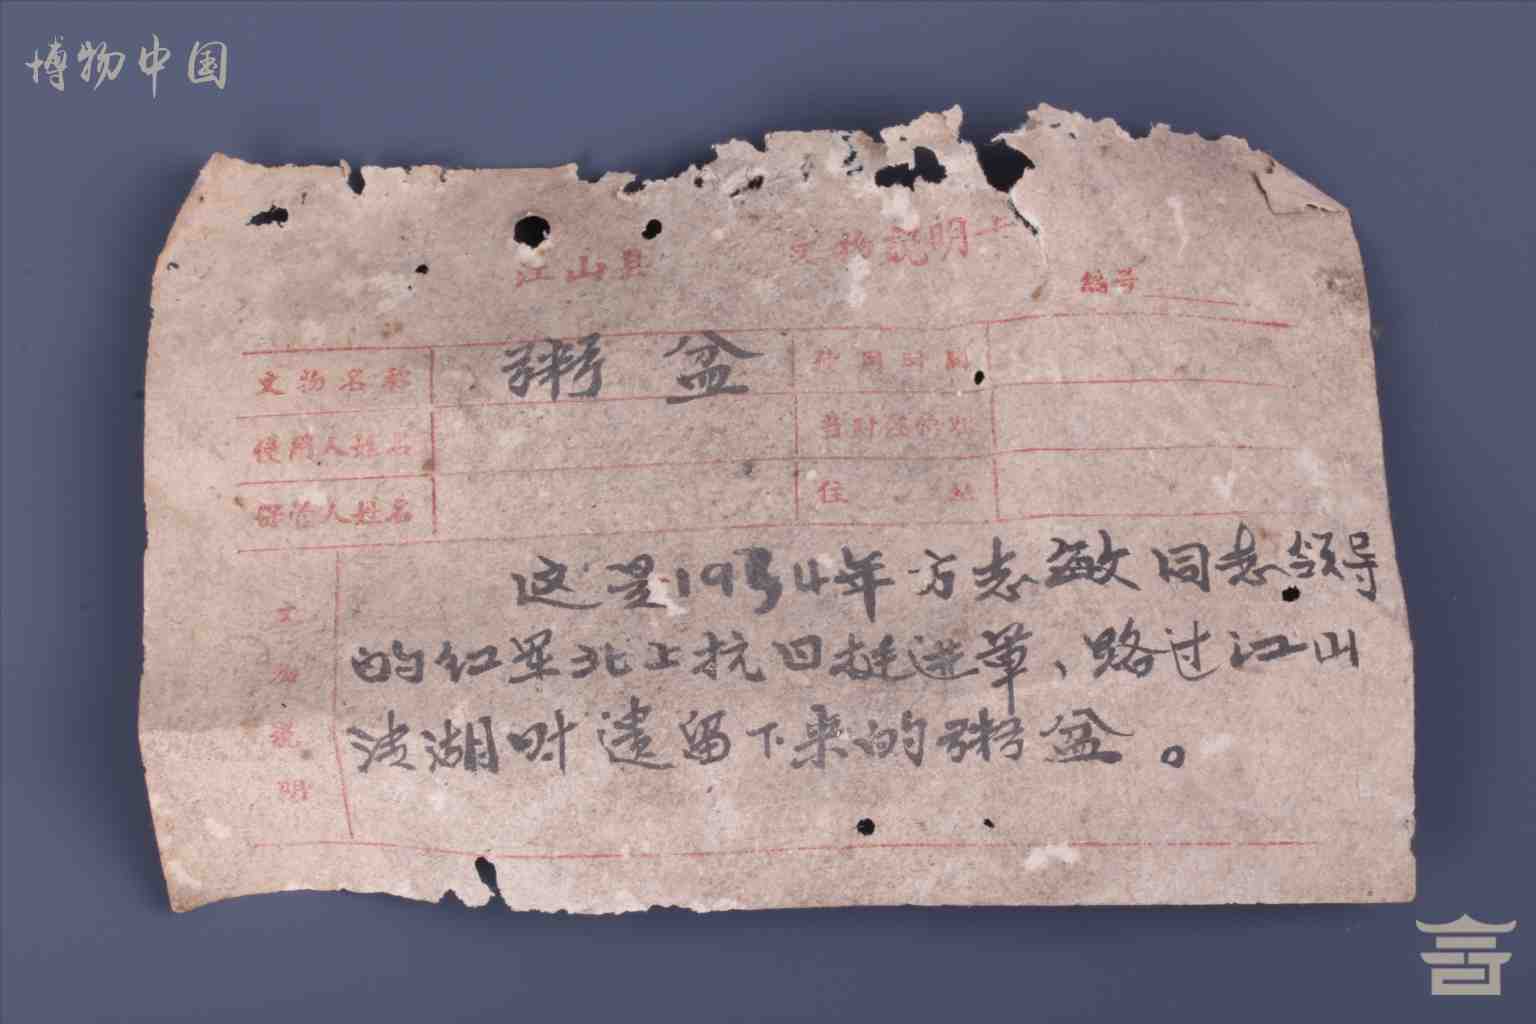 博物中国
江山县 文物説明卡
编号
文物名称 粥 盆 使用时间
使用人姓名 当时任何职
保管人姓名 住 址
文物説明
这是1934年方志敏同志领导
的红军北上抗日挺进军、路过江山
湖时遗留下来的粥盆。